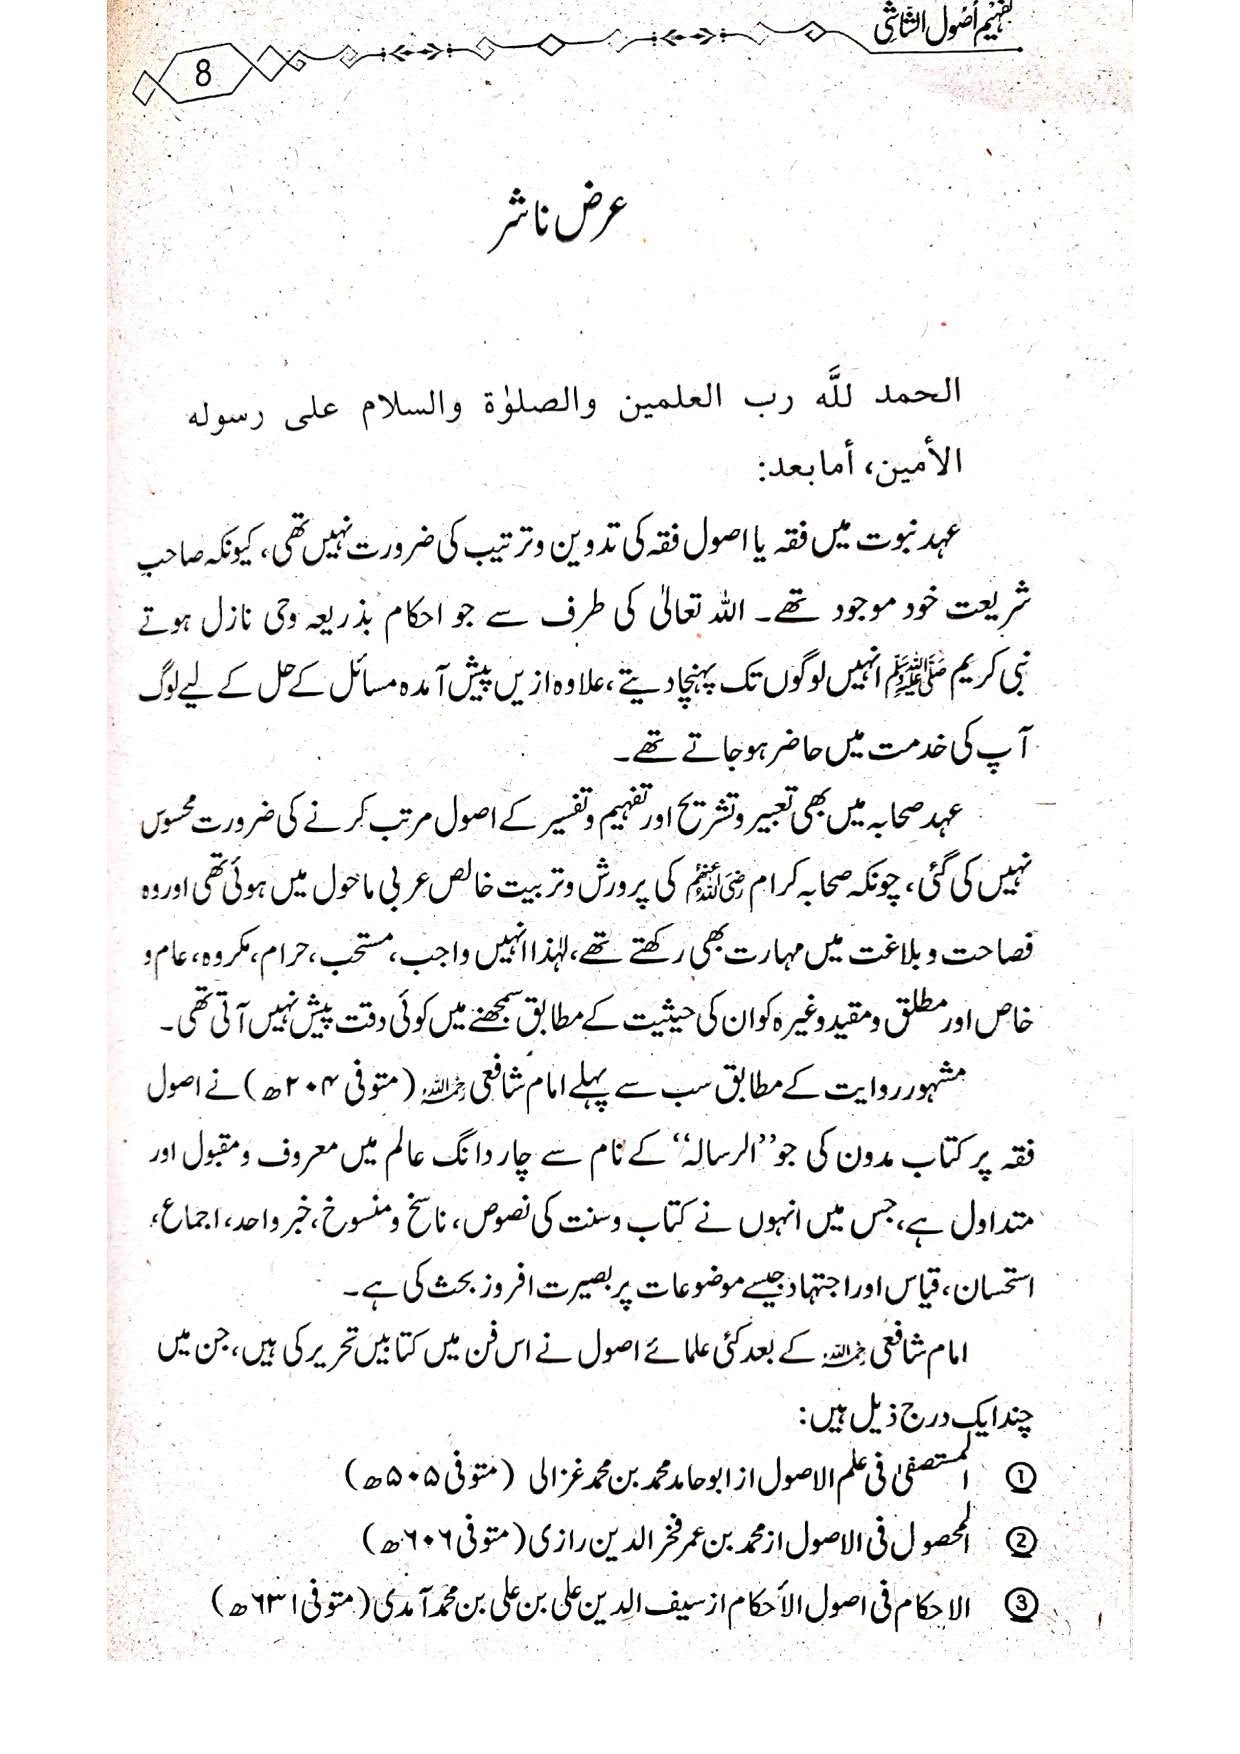 تفہیم اُصول الشاشی
8
عرض ناشر
الحمد للَّه رب العلمين والصلوٰة والسلام على رسوله
الأمين، أما بعد:
عہد نبوت میں فقہ یا اصول فقہ کی تدوین و ترتیب کی ضرورت نہیں تھی، کیونکہ صاحب
شریعت خود موجود تھے۔ اللہ تعالیٰ کی طرف سے جو احکام بذریعہ وحی نازل ہوتے
نبی کریم ﷺ انہیں لوگوں تک پہنچا دیتے، علاوہ ازیں پیش آمدہ مسائل کے حل کے لیے لوگ
آپ کی خدمت میں حاضر ہو جاتے تھے۔
عہد صحابہ میں بھی تعبیر و تشریح اور تفہیم و تفسیر کے اصول مرتب کرنے کی ضرورت محسوس
نہیں کی گئی، چونکہ صحابہ کرام رضی اللہ عنہم کی پرورش و تربیت خالص عربی ماحول میں ہوئی تھی اور وہ
فصاحت و بلاغت میں مہارت بھی رکھتے تھے، لہٰذا انہیں واجب، مستحب، حرام، مکروہ، عام و
خاص اور مطلق و مقید وغیرہ کو ان کی حیثیت کے مطابق سمجھنے میں کوئی دقت پیش نہیں آتی تھی۔
مشہور روایت کے مطابق سب سے پہلے امام شافعی رحمہ اللہ (متوفی ۲۰۴ھ) نے اصول
فقہ پر کتاب مدون کی جو ’’الرسالہ‘‘ کے نام سے چار دانگ عالم میں معروف و مقبول اور
متداول ہے، جس میں انہوں نے کتاب و سنت کی نصوص، ناسخ و منسوخ، خبر واحد، اجماع،
استحسان، قیاس اور اجتہاد جیسے موضوعات پر بصیرت افروز بحث کی ہے۔
امام شافعی رحمہ اللہ کے بعد کئی علمائے اصول نے اس فن میں کتابیں تحریر کی ہیں، جن میں
چند ایک درج ذیل ہیں:
① المستصفیٰ فی علم الاصول از ابو حامد محمد بن محمد غزالی (متوفی ۵۰۵ھ)
② المحصول فی الاصول از محمد بن عمر فخر الدین رازی (متوفی ۶۰۶ھ)
③ الاحکام فی اصول الأحکام از سیف الدین علی بن علی بن محمد آمدی (متوفی ۶۳۱ھ)